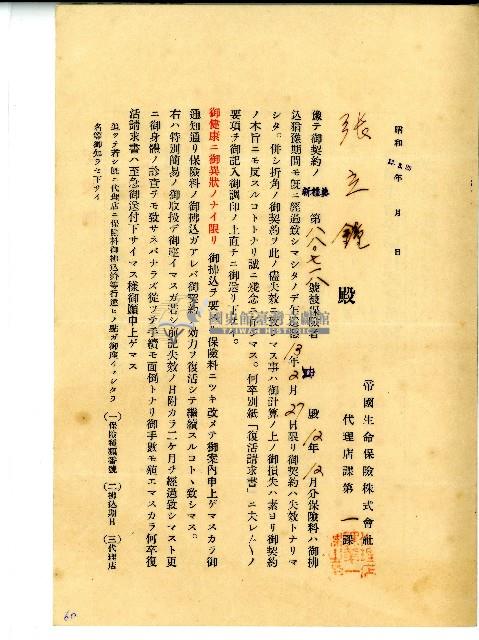 昭和 年 月 日
12.3.15
張立鏞 殿
帝國生命保險株式會社
代理店課第一課
豫テ御契約ノ 新種教 第八八〇七一八號被保險者 殿12年12月分保險料ハ御拂
込猶豫期間モ旣ニ經過致シマシタノデ乍遺憾13年2月27日限リ御契約ハ失效トナリマ
シタ。併シ折角ノ御契約ヲ此ノ儘失效ニ致シマス事ハ御計算ノ上ノ御損失ハ素ヨリ御契約
ノ本旨ニモ反スルコトトナリ誠ニ殘念ニ存ジマス。何卒別紙「復活請求書」ニ夫レ〲ノ
要項ヲ御記入御調印ノ上直チニ御送リ下サイ。
御健康ニ御異狀ノナイ限リ 御拂込ヲ要スル保險料ニツキ改メテ御案內申上ゲマスカラ御
通知通リ保險料ノ御拂込ガアレバ御契約ノ效力ヲ復活シテ繼續スルコトヽ致シマス。
右ハ特別簡易ノ御取扱デ御座イマスガ若シ前記失效ノ日附カラ二ケ月ヲ經過致シマスト更
ニ御身體ノ診査ヲモ致サネバナラズ從ツテ手續モ面倒トナリ御手數モ殖エマスカラ何卒復
活請求書ハ至急御送付下サイマス樣御願申上ゲマス
追ツテ若シ旣ニ代理店ニ保險料御拂込濟等行違ヒノ點ガ御座イマシタラ (一)保險種類番號 (二)拂込期日 (三)代理店
名等御知ラセ下サイ
國史館臺灣文獻館
TAIWAN HISTORICA
60